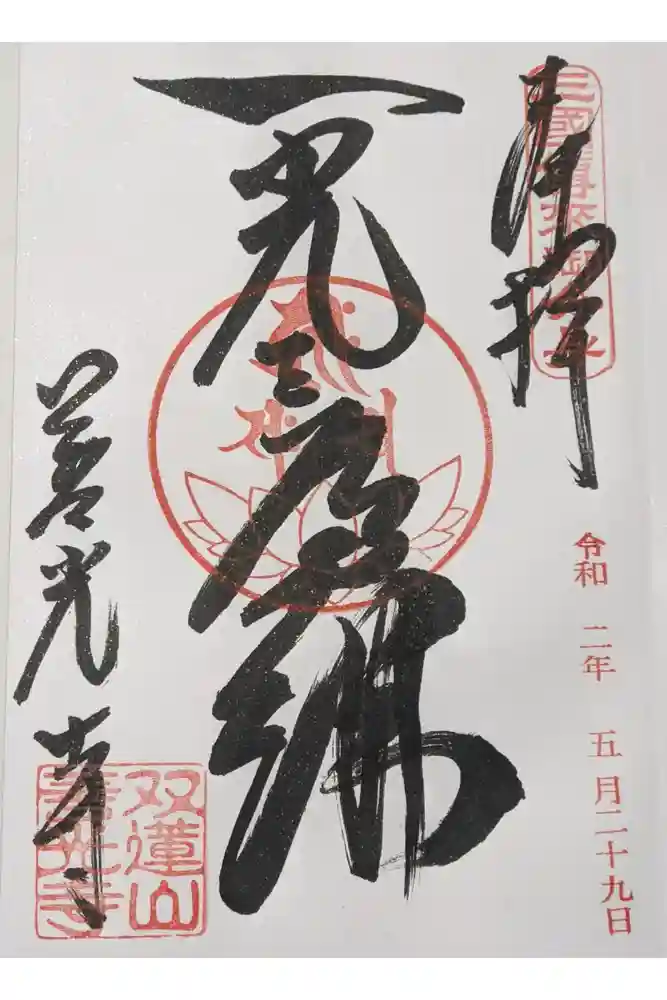 奉拜
三國傳來御
令和 二年 五月二十九日
一光三尊佛
善光寺
双蓮山
善光寺